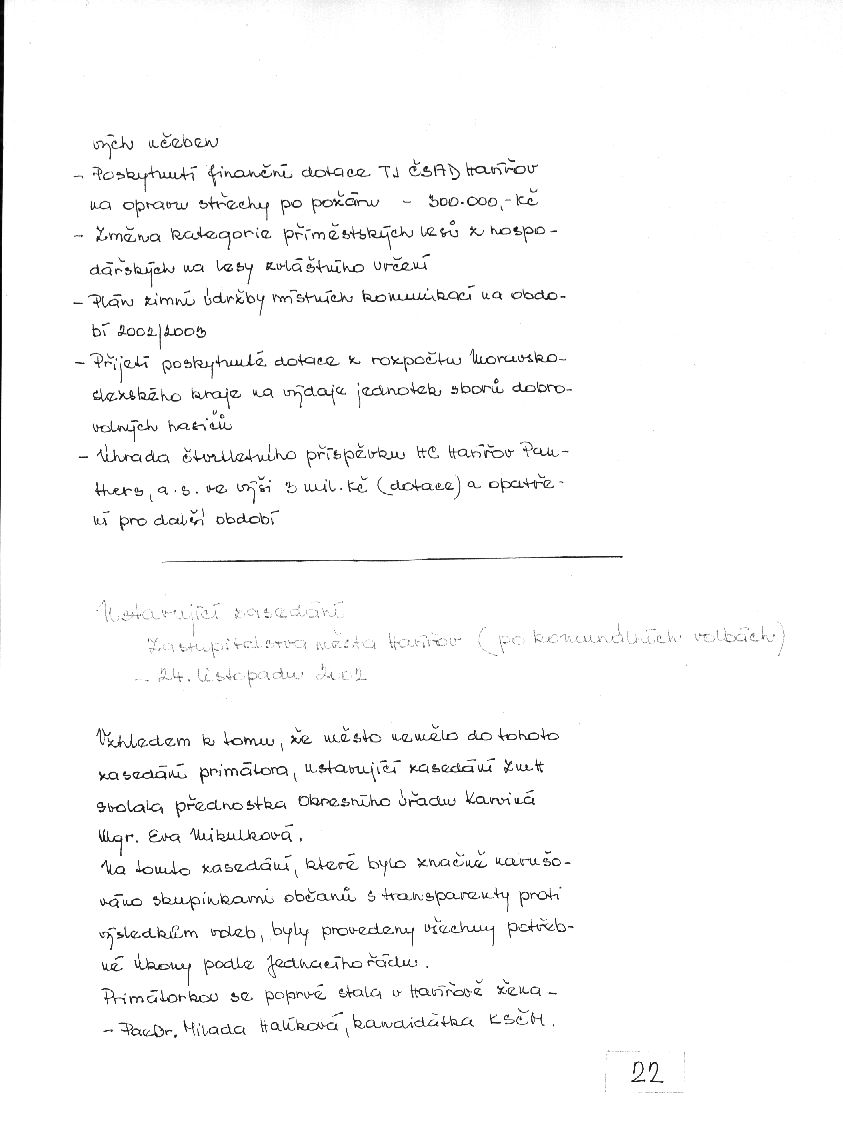 vých učeben
- Poskytnutí finanční dotace TJ ČSAD Havířov
na opravu střechy po požáru - 300.000,- Kč
- Změna kategorie příměstských lesů z hospo-
dářských na lesy zvláštního určení
- Plán zimní údržby místních komunikací na obdo-
bí 2002/2003
- Přijetí poskytnuté dotace z rozpočtu Moravsko-
slezského kraje na výdaje jednotek sborů dobro-
volných hasičů
- Úhrada čtvrtletního příspěvku HC Havířov Pan-
thers, a.s. ve výši 3 mil. Kč (dotace) a opatře-
ní pro další období
Ustavující zasedání
Zastupitelstva města Havířov (po komunálních volbách)
- 24. listopadu 2002
Vzhledem k tomu, že město nemělo do tohoto
zasedání primátora, ustavující zasedání ZmH
svolala přednostka Okresního úřadu Karviná
Mgr. Eva Mikulková.
Na tomto zasedání, které bylo značně narušo-
váno skupinkami občanů s transparenty proti
výsledkům voleb, byly provedeny všechny potřeb-
né úkony podle Jednacího řádu.
Primátorkou se poprvé stala v Havířově žena -
- PaedDr. Milada Halíková, kandidátka KSČM.
22